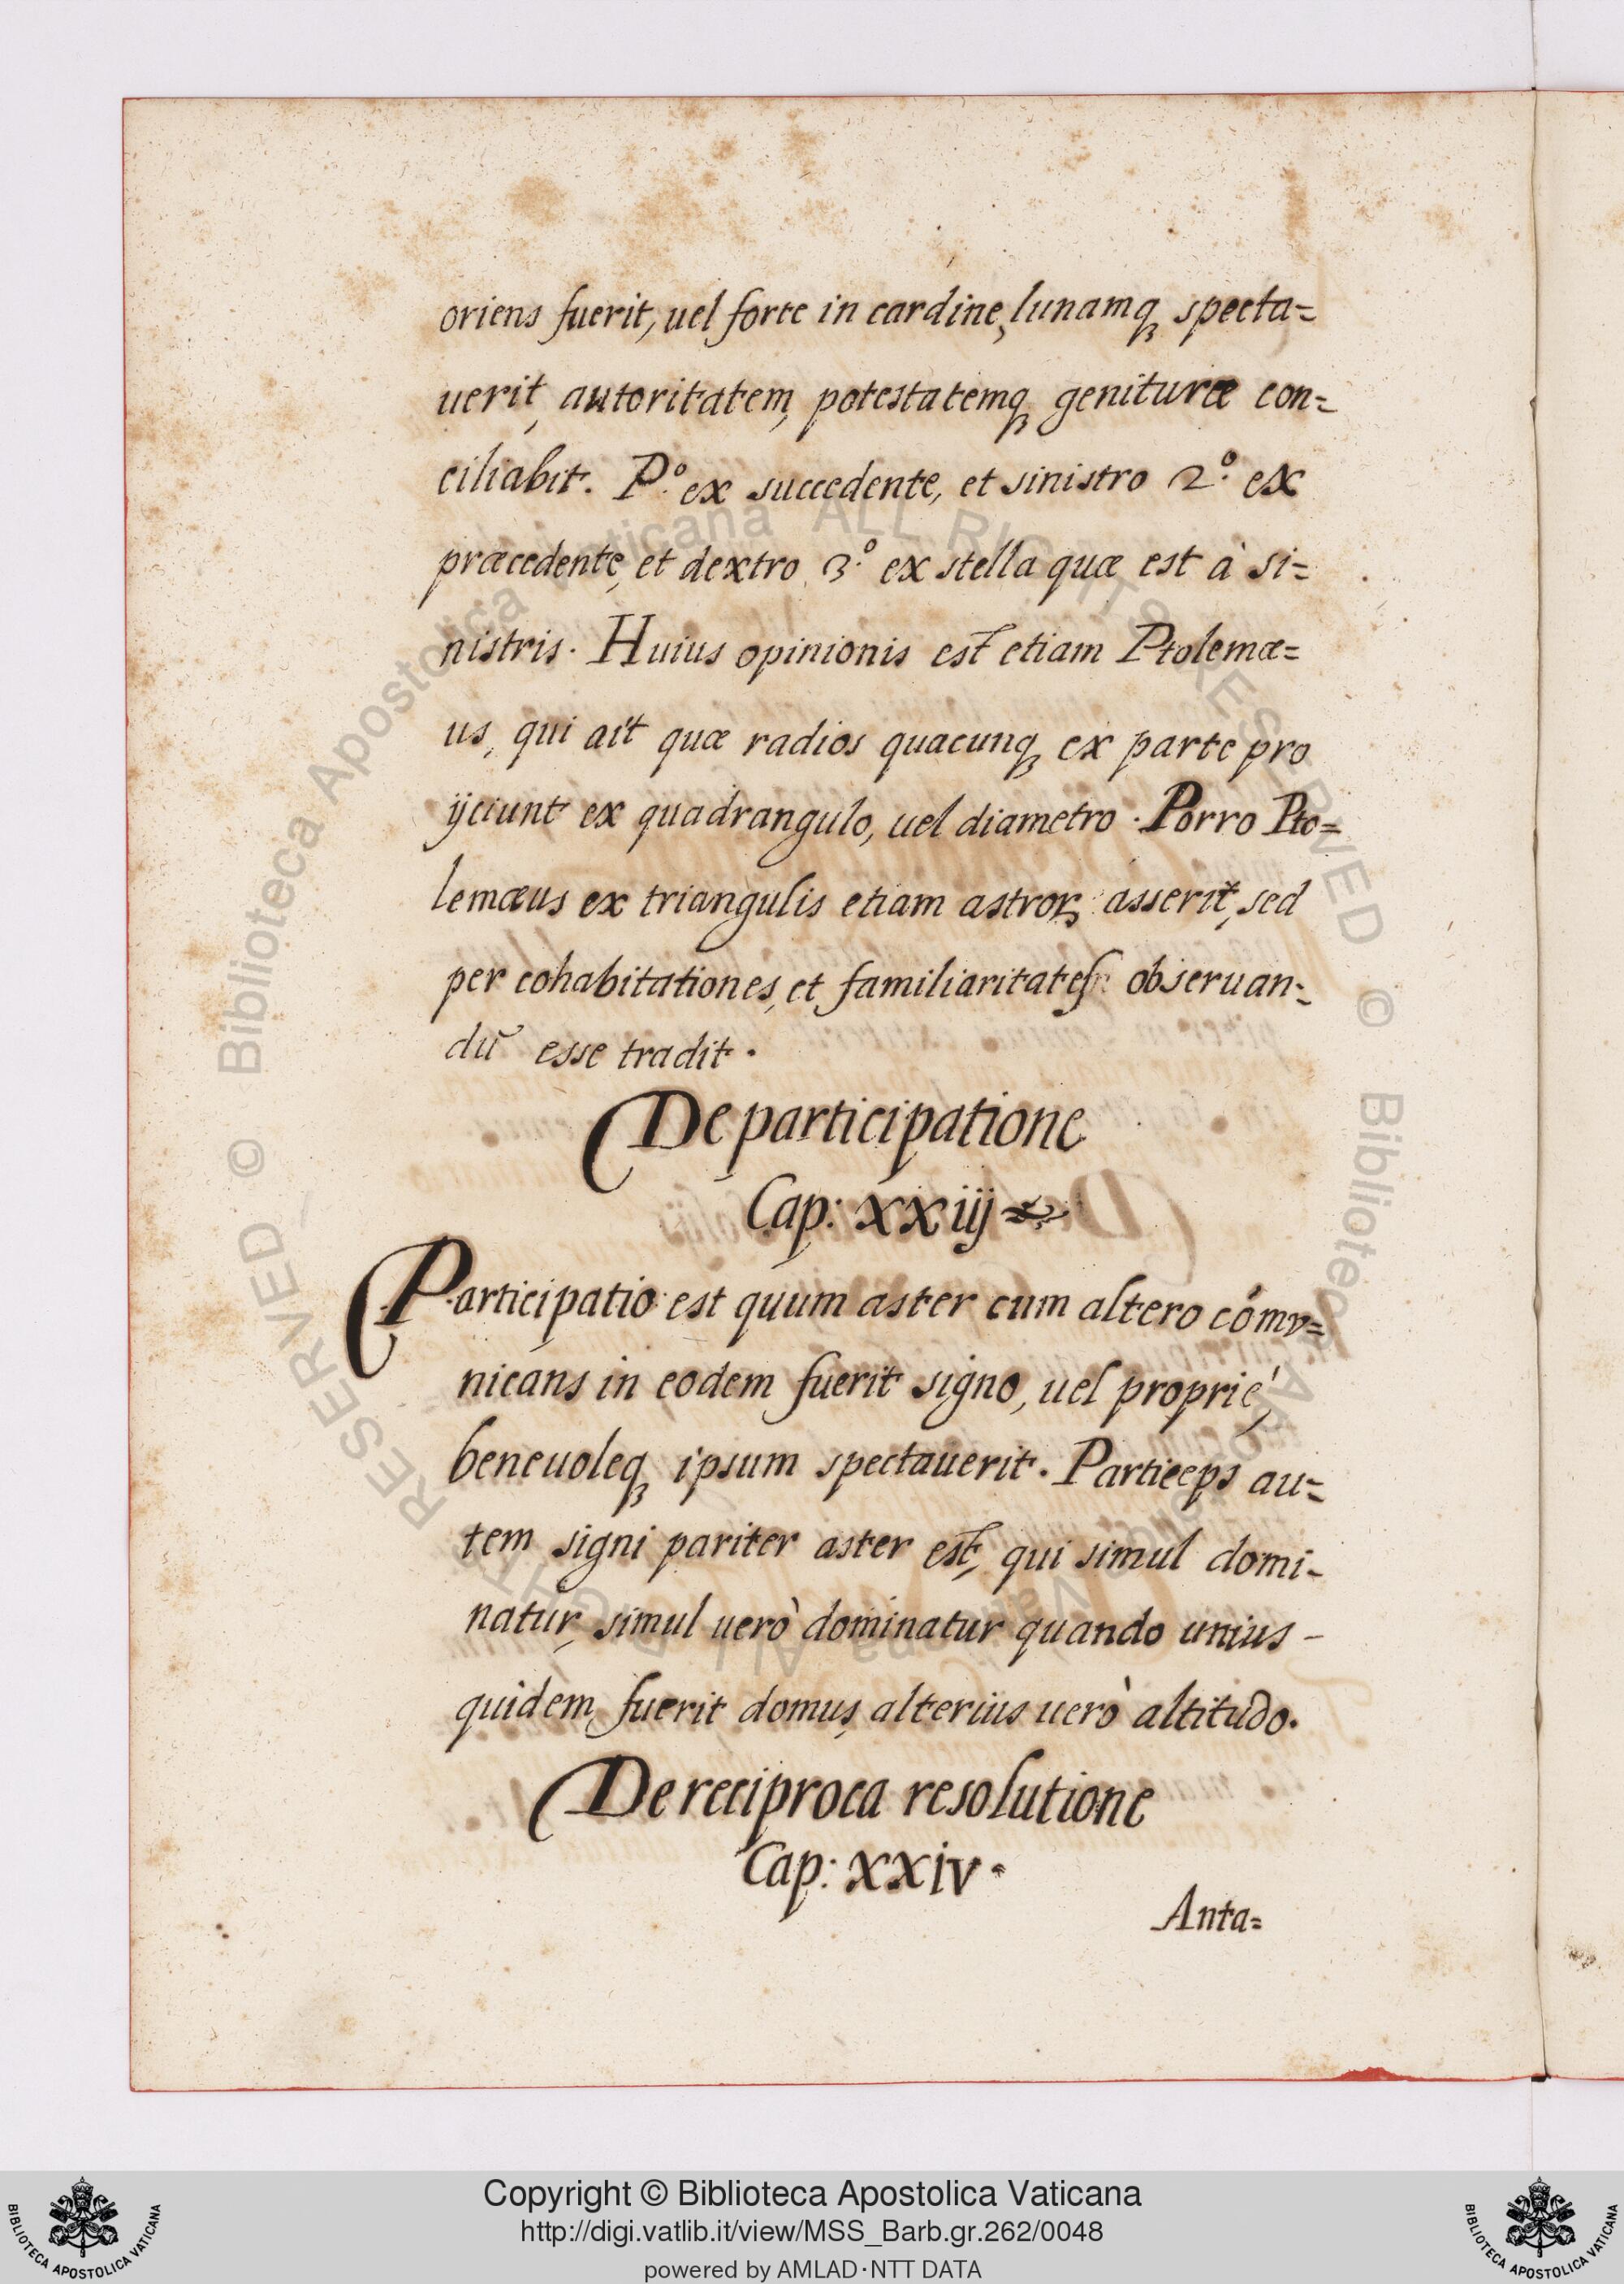 oriens fuerit, uel forte in cardine, lunamq́ specta=
uerit, autoritatem, potestatemq́ genituræ con=
ciliabit. P.º ex succedente, et sinistro 2.º ex
præcedente, et dextro 3.º ex stella quæ est à si=
nistris. Huius opinionis est etiam Ptolemæ=
us, qui ait quæ radios quacunq́ ex parte pro
ijciunt ex quadrangulo, uel diametro. Porro Pto=
lemæus ex triangulis etiam astroꝝ asserit, sed
per cohabitationes, et familiaritates observan=
dũ esse tradit.
De participatione
Cap: xxiij
Participatio est quum aster cum altero cómv=
nicans in eodem fuerit signo, uel proprié,
beneuoleq́ ipsum spectauerit. Particeps au=
tem signi pariter aster est, qui simul domi-
natur, simul uerò dominatur quando unius -
quidem fuerit domus, alterius uerò altitudo.
De reciproca resolutione
Cap: xxiv.
Anta=
© Biblioteca Apostolica Vaticana ALL RIGHTS RESERVED © Biblioteca Apostolica Vaticana ALL RIGHTS RESERVED
Copyright © Biblioteca Apostolica Vaticana
http://digi.vatlib.it/view/MSS_Barb.gr.262/0048
powered by AMLAD·NTT DATA
BIBLIOTECA APOSTOLICA VATICANA
BIBLIOTECA APOSTOLICA VATICANA